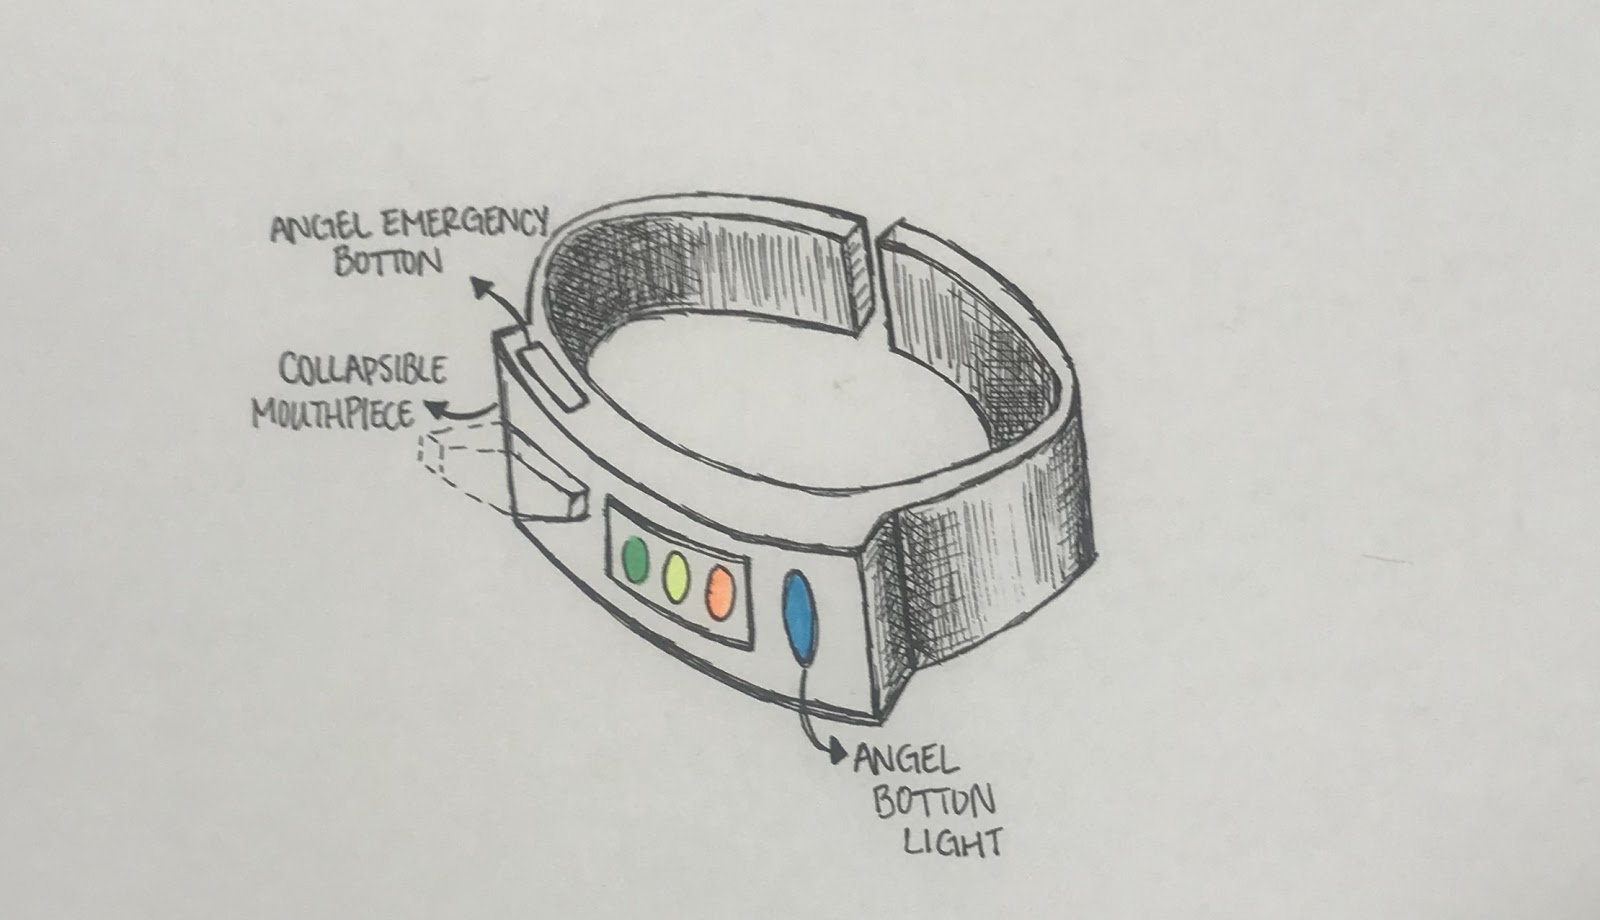 ANGEL EMERGENCY
BOTTON
COLLAPSIBLE
MOUTHPIECE
ANGEL
BOTTON
LIGHT